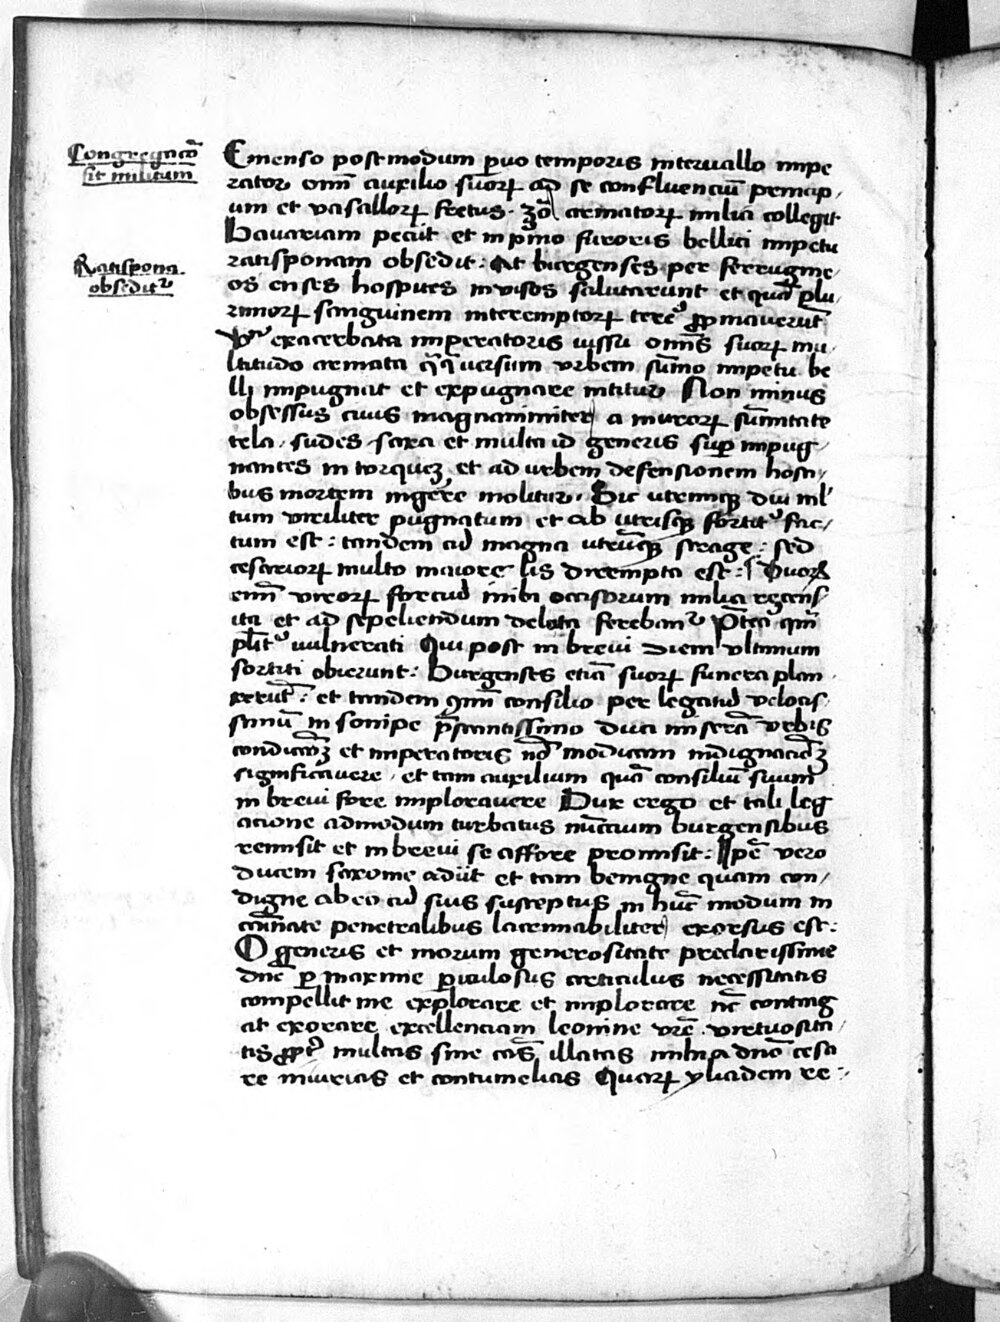 Congregacō
fit militum
Ratispona
obseditᷣ
Emenso postmodum ꝑuo temporis interuallo impe
rator om̅i auxilio suorꝝ ad se confluenciū princip,
um et vasallorꝝ fretus · armatorꝝ milia collegit
Bauariam peciit et in pͥmo furoris bellici impetu
ratisponam obsedit: At burgenses per ferrugine
os enses hospites inuisos salutarunt et quā plu
rimorꝝ sanguinem interemptorꝝ terre ꝓpinauerūt
exacerbata imperatoris iussu om̅s suorꝝ mu
ltitudo armata versum vrbem sūmo impetu be
lli impugnat et expugnare nititur Non minus
obsessus ciuis magnanimiter a murorꝝ sūmitate
tela, sudes, saxa et multa id generis suꝑ impug
nantes intorquꝫ, et ad vrbem defensionem hosti,
bus mortem ingere̅ molitur, Sic vtrimqꝫ diu ml̓
tum viriliter pugnatum et ab vtrisqꝫ fortitᷣ fac,
tum est: tandem ad magna vtrūqꝫ strage: sed
cesariorꝝ multo maiore lis dirempta est: Duorꝝ
eni̅ virorꝝ forcium inibi occisorum milia recens
ita et ad sepeliendum delata ferebanᷣ P̅terea qm̅
pl̅itᷣ vulnerati Qui post in breui diem vltimum
sortiti obierunt: Burgenses etiā suorꝝ funera plan
xerūt: et tandem ꝯmi̅ consilio per legatū velocis
simū in sonipe p̅stantissimo duci miserā vrbis
condicōꝫ et imperatoris nō modicam indignacōꝫ
significauere, et tam auxilium quā consiliū suum
in breui fore implorauere Dux ergo et tali leg
acione admodum turbatus nūccium burgensibus
remisit et in breui se affore promisit: Ip̅e vero
ducem saxonie adiit et tam benigne quam con,
digne ab eo ad suis susceptus in hūc modum in
penetralibus lacrimabiliter exorsus est:
O generis et morum generositate preclarissime
dn̅e ꝑ maxime ꝑiculosus articulus necessitatis
compellit me explorare et implorare nc̅ conting
at exorare excellenciam leonine vr̅e virtuosita,
tis ꝓptᷣ multas sine cās illatas mihi a dn̅o cesa
re iniurias et contumelias Quarꝝ yliadem re:,